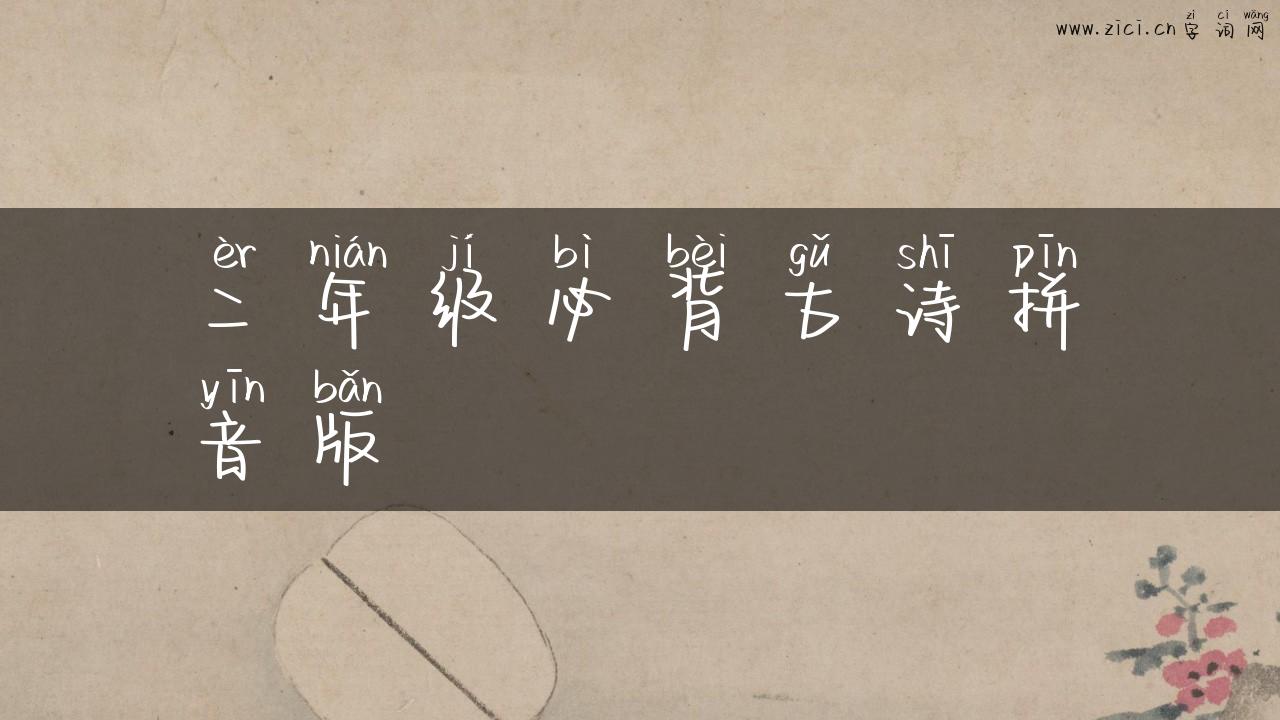 zì cí wǎng
www.zici.cn 字词网
èr nián jí bì bèi gǔ shī pīn
二年级必背古诗拼
yīn bǎn
音版